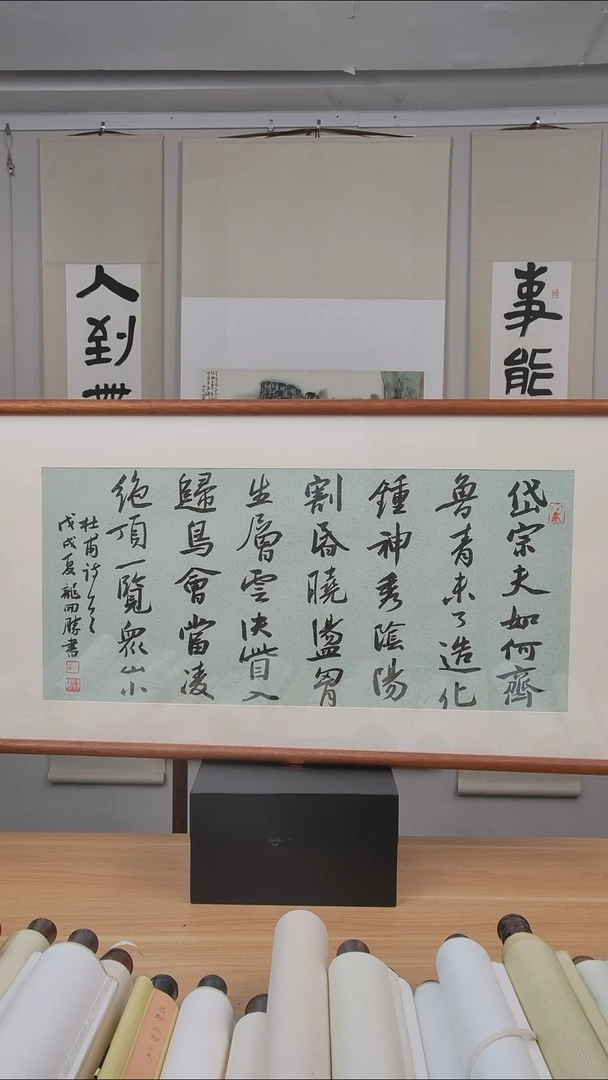 事能
人到
岱宗夫如何齊
魯青未了造化
鍾神秀陰陽
割昏曉盪胷
生層雲決眥入
歸鳥會當凌
絶頂一覽衆山小
杜甫诗
戊戌夏龍開勝書